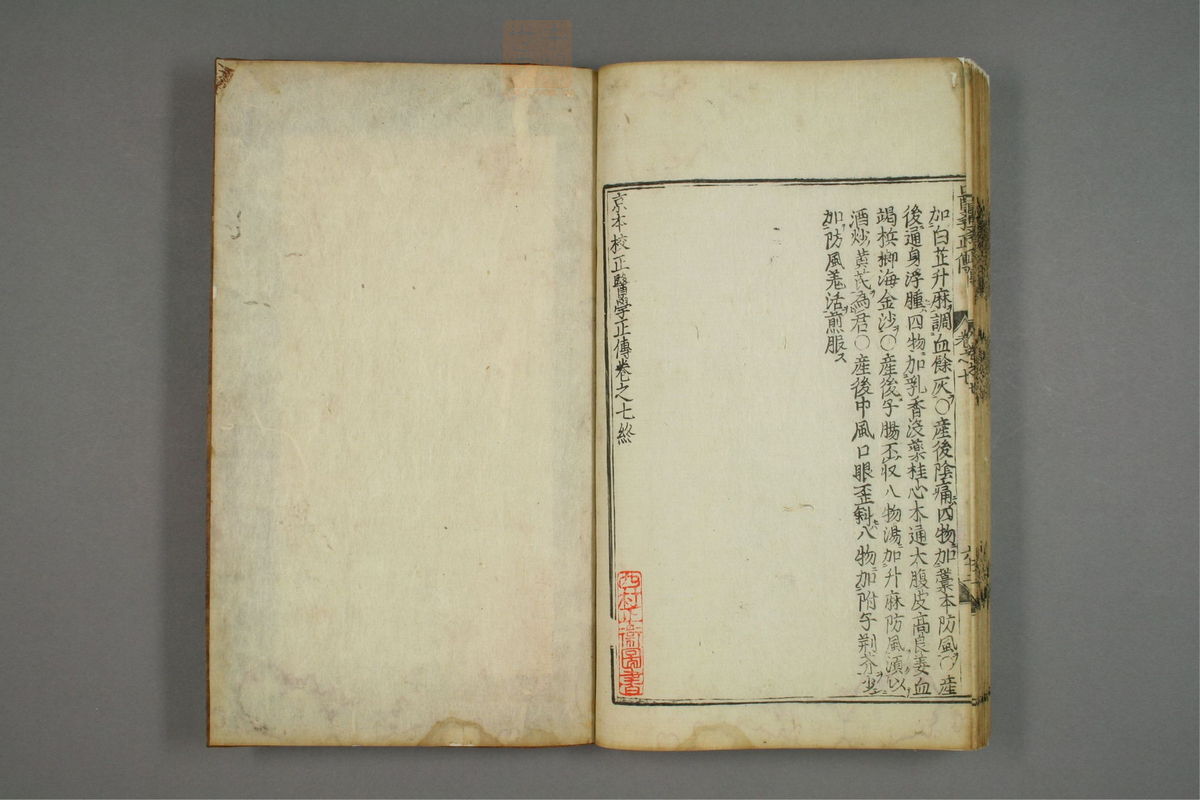 加白芷升麻調血餘灰○産後陰痛四物加藁本防風○産
後通身浮腫四物加乳香没藥桂心木通大腹皮高良姜血
竭梹榔海金沙○産後子腸不収八物湯加升麻防風須以
酒炒黄芪為君○産後中風口眼歪斜八物加附子荆芥少
加防風羌活煎服
京本校正醫學正傳卷之七終